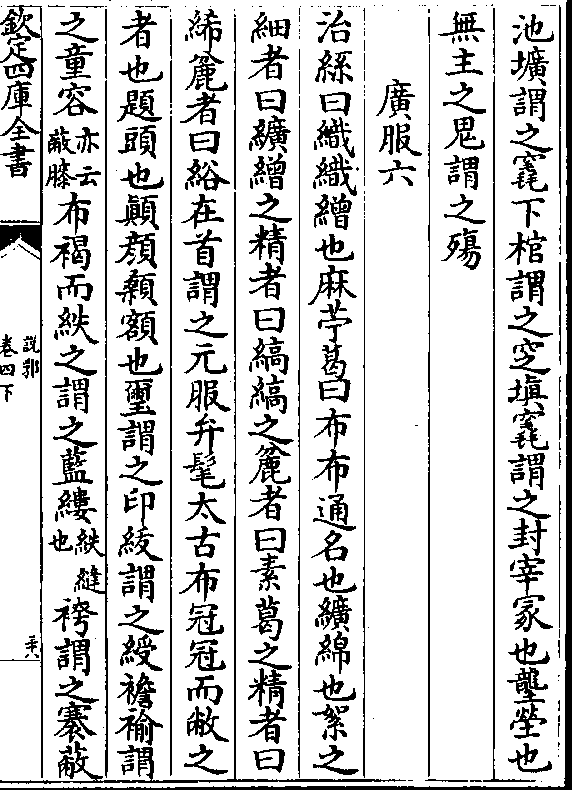 池壙謂之竁下棺謂之窆塡竁謂之封宰冢也壟塋也
無主之鬼謂之殤
廣服六
治絲曰織織繒也麻苧葛曰布布通名也纊綿也絮之
細者曰纊繒之精者曰縞縞之麄者曰素葛之精者曰
絺麄者曰綌在首謂之元服弁髦太古布冠冠而敝之
者也題頭也顚顔顙額也璽謂之印綬謂之綬襜褕謂
之童容亦云蔽膝布褐而紩之謂之藍縷紩縫也袴謂之褰蔽
欽定四庫全書
說郛
卷四下